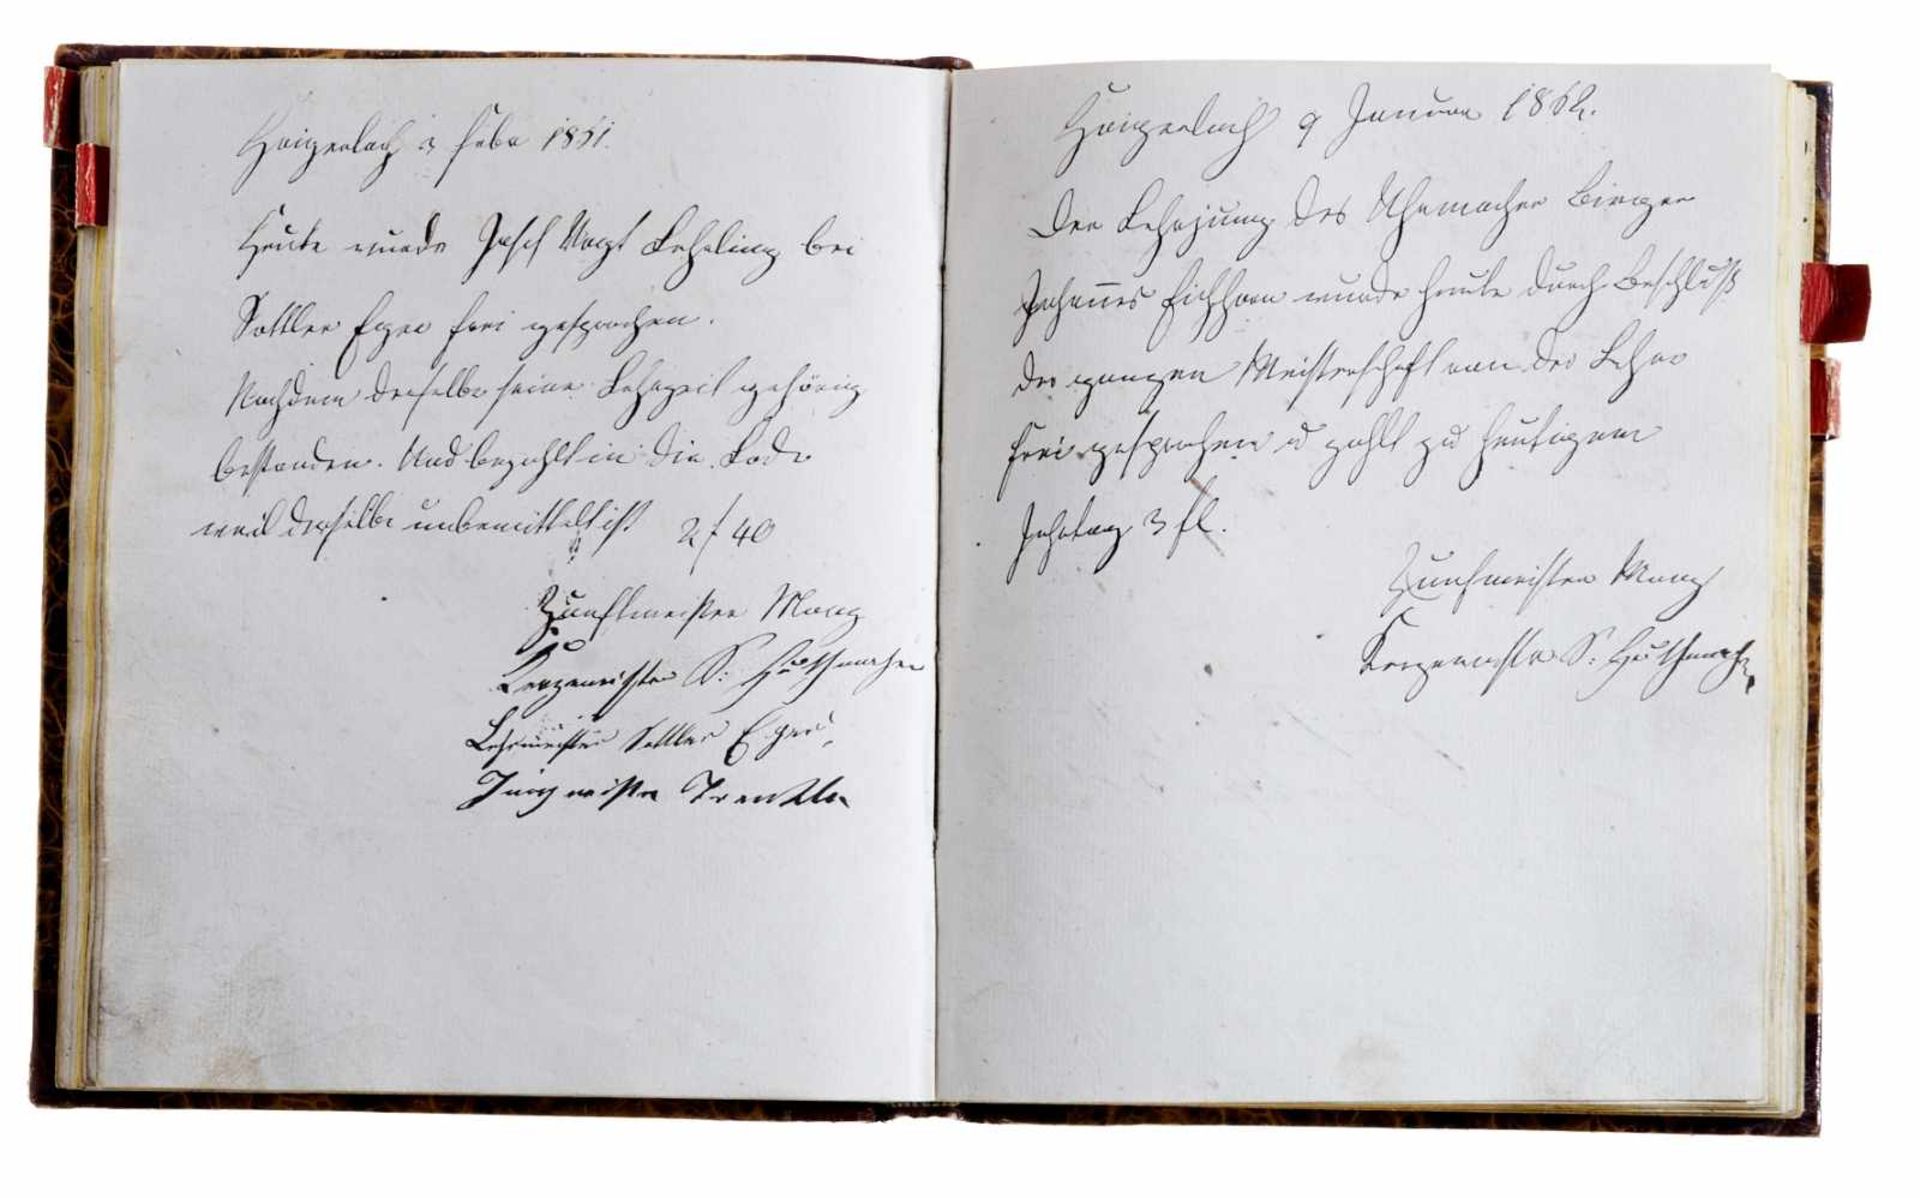 Haigerloch 3 Febr 1851.
Heute wurde Josef Vogt Lehrling bei
Sattler Eger frei gesprochen.
Nachdem derselbe seine Lehrzeit gehörig
bestanden. Und bezahlt in die Lade
weil derselbe unbemittelt ist 2 f 40
Zunftmeister Manz
Kerzenmeister S: Huthmacher
Lehrmeister Sattler Eger
Jungmeister Trenkle
Haigerloch 9 Januar 1852.
Der Lehrjung des Uhrmacher Binger
Johannes Eichhorn wurde heute durch Beschluß
der ganzen Meisterschaft von der Lehre
frei gesprochen u zahlt zu heutigem
Jahrtag 3 fl.
Zunfmeister Manz
Kerzenmeister S: Huthmacher